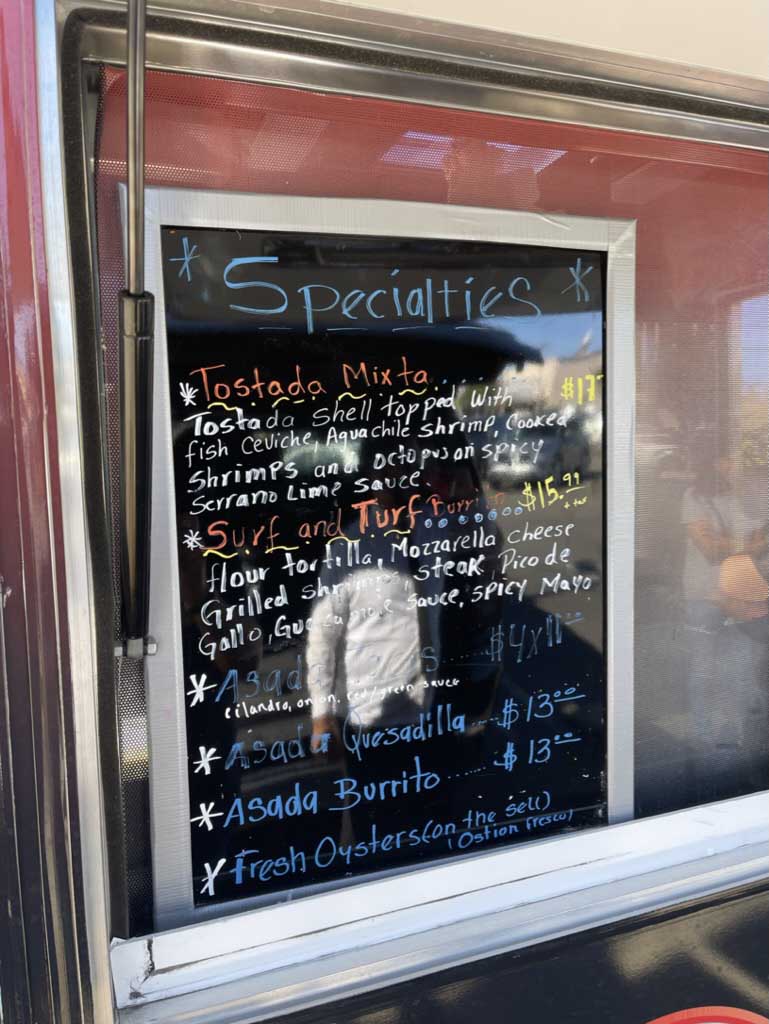 * Specialties *
* Tostada Mixta $17
Tostada shell topped with
fish ceviche, Aguachile shrimp, Cooked
shrimps and octopus on spicy
Serrano Lime sauce.
* Surf and Turf Burrito $15.99
+ tax
flour tortilla, Mozzarella cheese
Grilled shrimps, steak, Pico de
Gallo, Guacamole sauce, spicy Mayo
* Asada $4x11.00
cilantro, onion, red/green sauce
* Asada Quesadilla ..... $13.00
* Asada Burrito ...... $13.00
* Fresh Oysters (on the sell)
(Ostion fresco)